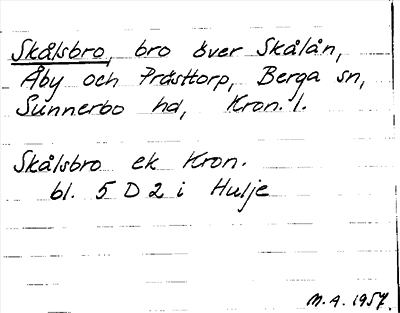 Skålsbro, bro över Skålån,
Åby och Prästtorp, Berga sn,
Sunnerbo hd, Kron. l.
Skålsbro ek Kron.
bl. 5 D 2 i Hulje
M.A. 1957.